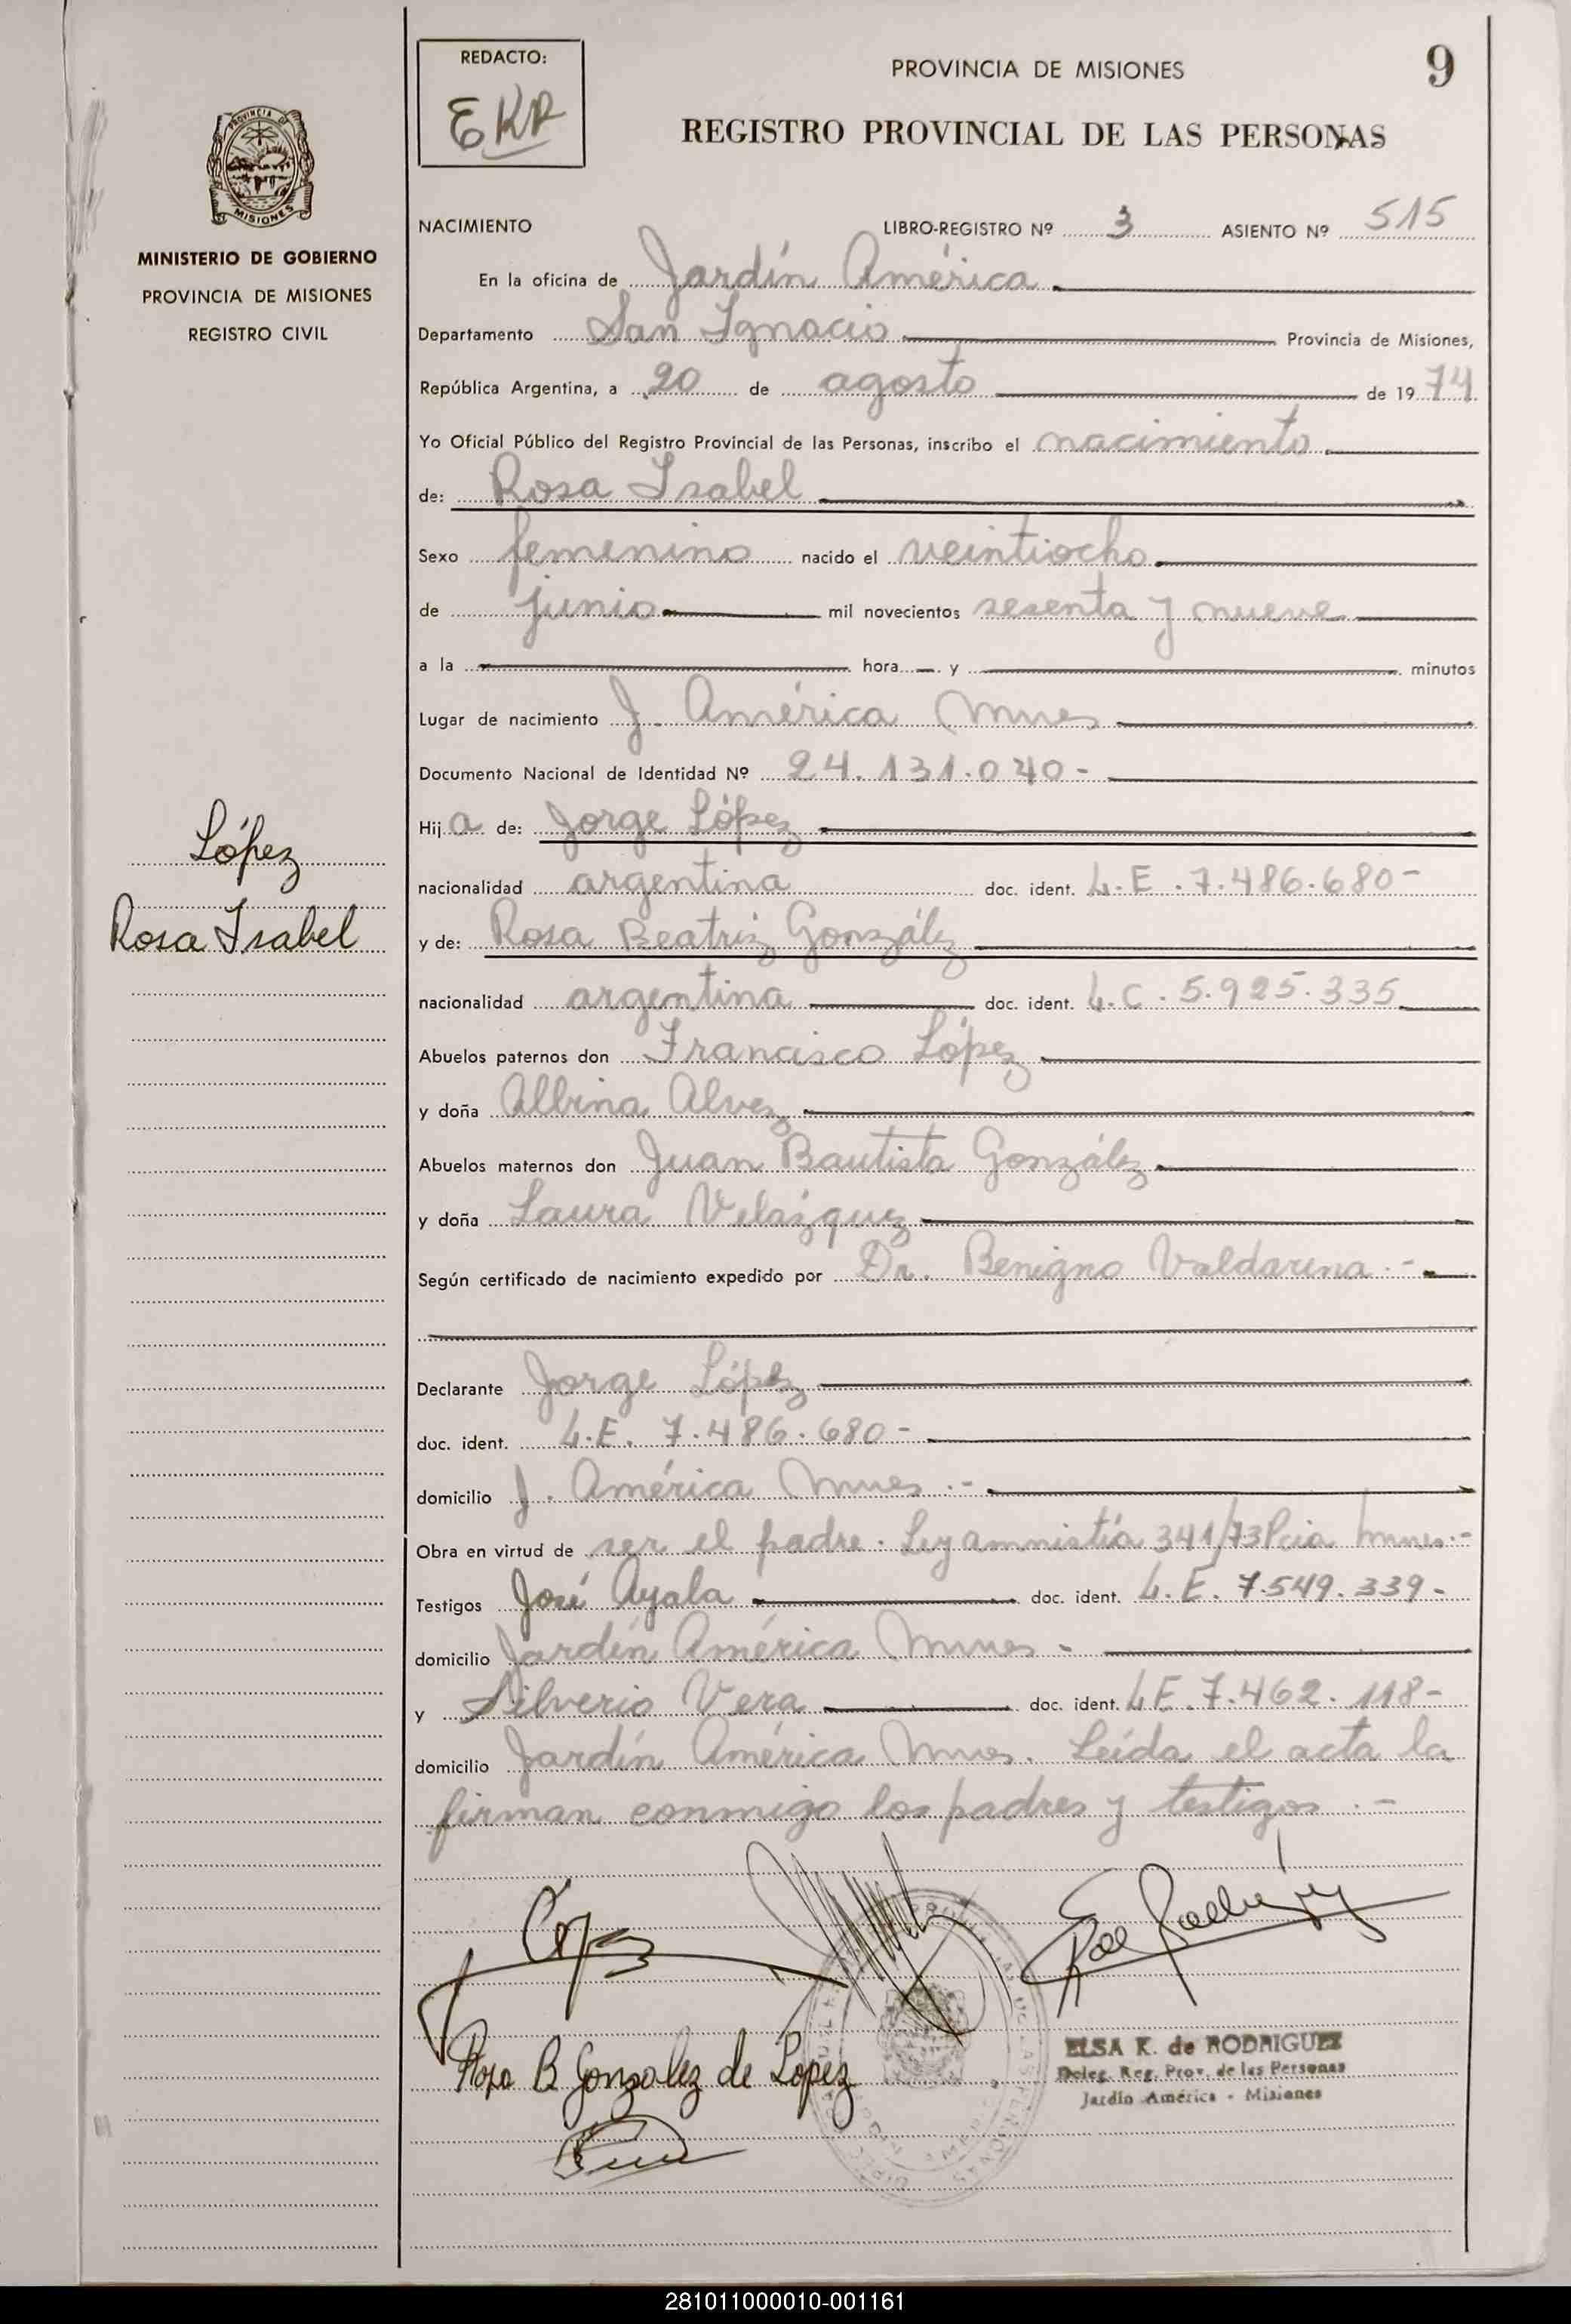 REDACTO:
EKR
PROVINCIA DE MISIONES
9
REGISTRO PROVINCIAL DE LAS PERSONAS
PROVINCIA DE
MISIONES
MINISTERIO DE GOBIERNO
PROVINCIA DE MISIONES
REGISTRO CIVIL
López
Rosa Isabel
NACIMIENTO LIBRO-REGISTRO Nº 3 ASIENTO Nº 515
En la oficina de Jardín América
Departamento San Ignacio Provincia de Misiones,
República Argentina, a 20 de agosto de 1974
Yo Oficial Público del Registro Provincial de las Personas, inscribo el nacimiento
de: Rosa Isabel
Sexo femenino nacido el veintiocho
de junio mil novecientos sesenta y nueve
a la hora y minutos
Lugar de nacimiento J. América Mnes
Documento Nacional de Identidad Nº 24.131.040-
Hija de: Jorge López
nacionalidad argentina doc. ident. L.E. 7.486.680-
y de: Rosa Beatriz González
nacionalidad argentina doc. ident. L.C. 5.925.335
Abuelos paternos don Francisco López
y doña Albina Alvez
Abuelos maternos don Juan Bautista González
y doña Laura Velázquez
Según certificado de nacimiento expedido por Dr. Benigno Valdarena.-
Declarante Jorge López
doc. ident. L.E. 7.486.680-
domicilio J. América Mnes.-
Obra en virtud de ser el padre. Ley amnistía 341/73 Pcia Mnes.-
Testigos José Ayala doc. ident. L.E. 7.549.339-
domicilio Jardín América Mnes-
y Silverio Vera doc. ident. L.E. 7.462.118-
domicilio Jardín América Mnes. Leída el acta la
firman conmigo los padres y testigos.-
Rosa B Gonzalez de Lopez
ELSA K. de RODRIGUEZ
Deleg. Reg. Prov. de las Personas
Jardín América - Misiones
281011000010-001161